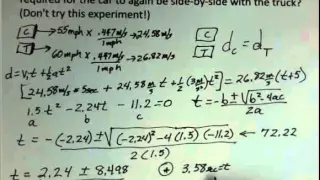 required for the car to again be side-by-side with the truck?
(Don't try this experiment!)
C → 55mph × .447 m/s / 1mph → 24.58 m/s
T → 60mph × .447 m/s / 1mph → 26.82 m/s
d_C = d_T
d = v₁t + ½at²
[24.58 m/s * 5sec + 24.58 m/s t + ½(3 m/s²)t²] = 26.82 m/s (t+5)
1.5t² - 2.24t - 11.2 = 0
a b c
t = -b ± √b² - 4ac / 2a
t = -(-2.24) ± √(-2.24)² - 4(1.5)(-11.2) / 2(1.5) ← 72.22
t = 2.24 ± 8.498 ⊕ 3.58 sec = t